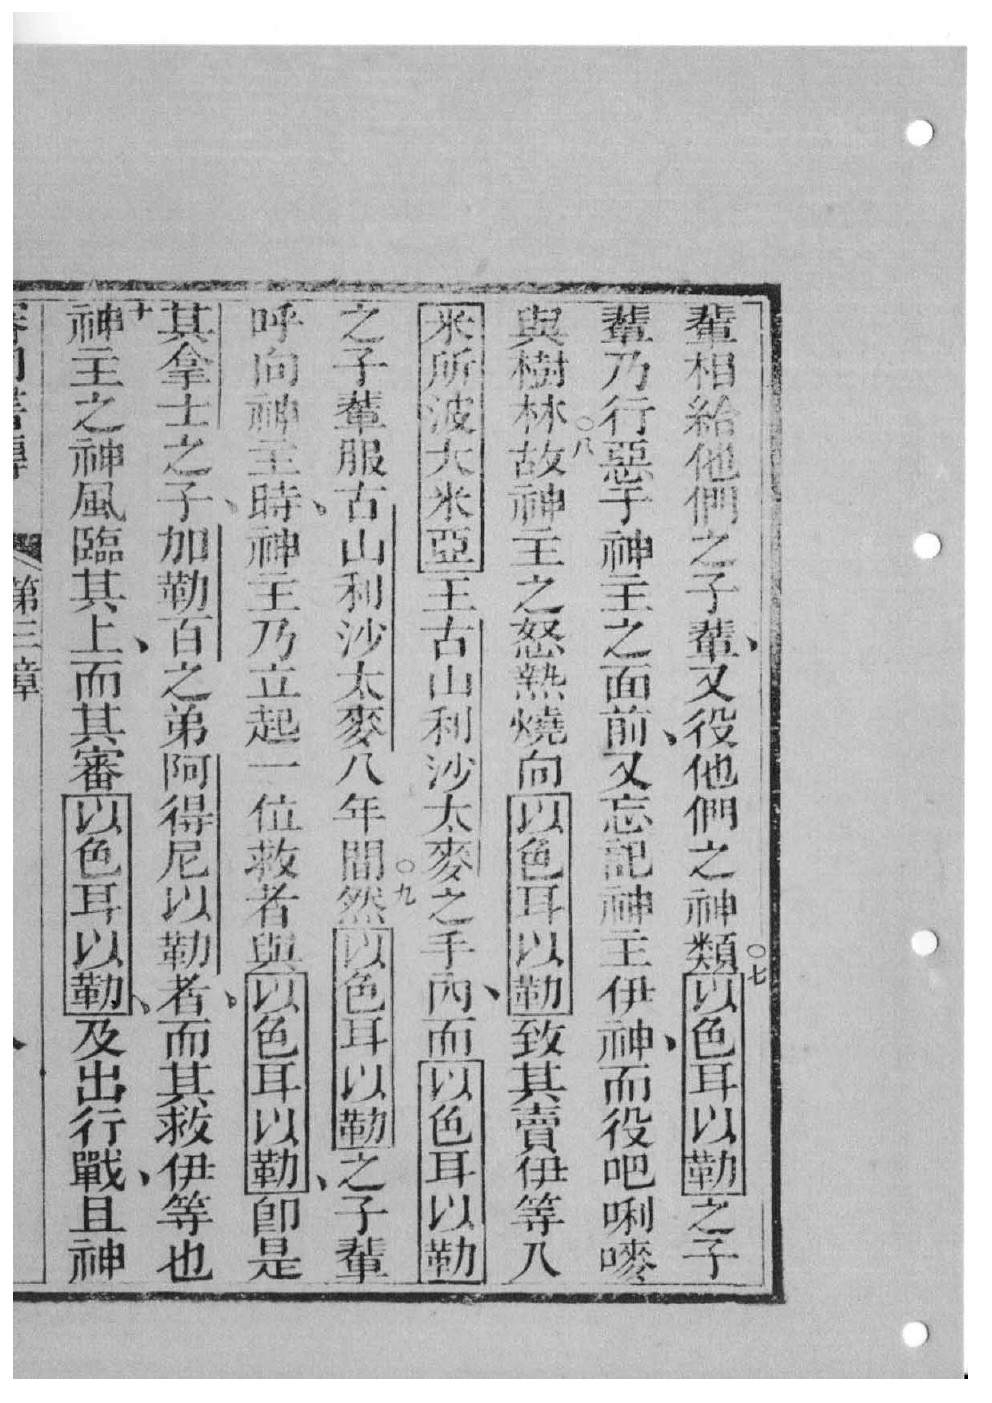 輩相給他們之子輩、又役他們之神類○七以色耳以勒之子
輩乃行惡于神主之面前、又忘記神主伊神、而役吧唎嘜
與樹林○八故神主之怒熱燒向以色耳以勒致其賣伊等入
米所波大米亞王古山利沙太麥之手內、而以色耳以勒
之子輩服古山利沙太麥八年間○九然以色耳以勒之子輩
呼向神主時、神主乃立起一位救者與以色耳以勒、卽是
其拿士之子、加勒百之弟阿得尼以勒者、而其救伊等也
十神主之神風臨其上、而其審以色耳以勒、及出行戰、且神
審司書傳 第三章